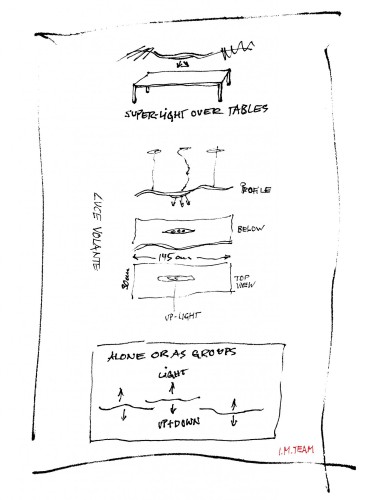 SUPER-LIGHT OVER TABLES
LUCE VOLANTE
PROFILE
BELOW
145 cm
30 cm
TOP
VIEW
UP-LIGHT
ALONE OR AS GROUPS
LIGHT
UP+DOWN
I.M. TEAM